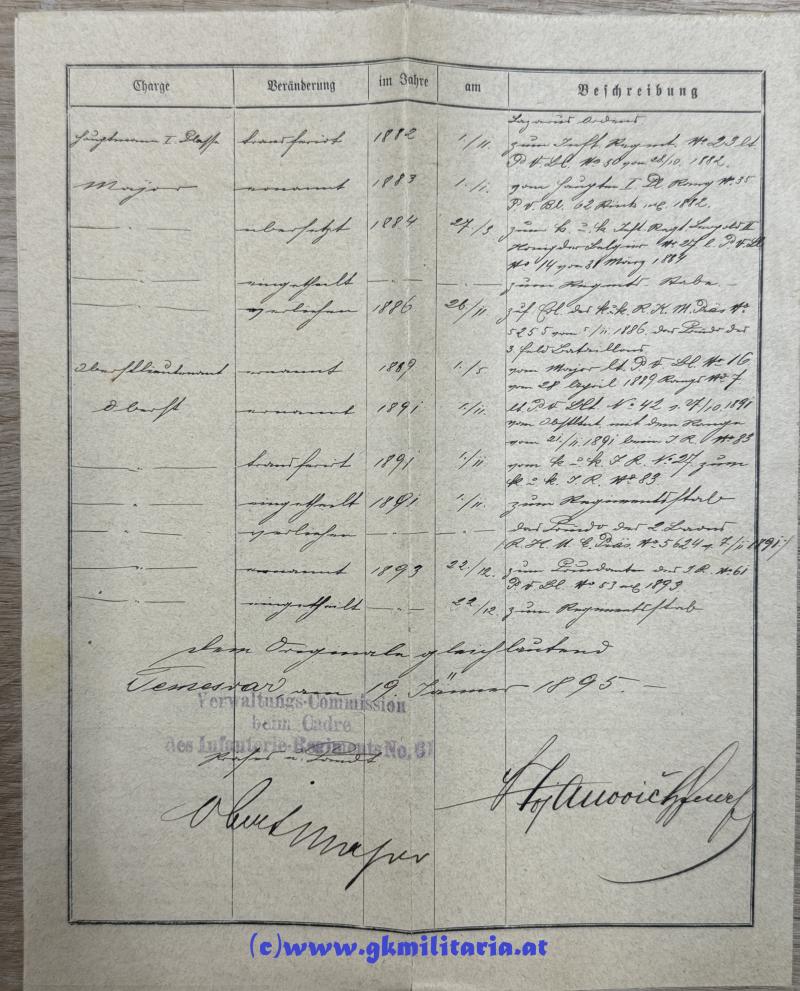 Charge Veränderung im Jahre am Beschreibung
Lazarus Ordens
Hauptmann I. Classe transferirt 1882 1./11. zum Inft. Regmt. No 23 lt
P. V. Bl. No 50 vom 26/10. 1882.
Major ernannt 1883 1./1. vom Hauptm I Cl Rang No 35
P. V. Bl. 62 1882.
übersetzt 1884 27./3 zum k. u. k. Inft. Regt Leopold II
König der Belgier No 27 l. P. V. Bl
No 14 vom 31 März 1884
eingetheilt zum Regmts Stabe
verliehen 1886 26/11. zuf. Erl. des k. u. k. R. K. M. Präs No
5255 vom 5/11. 1886. das Comdo des
3. Feld Bataillons
Oberstlieutenant ernannt 1889 1./5 vom Major lt. P. V. Bl. No 16
vom 28 April 1889 Rangs No 7
Oberst ernannt 1891 1./11. lt P. V. Blt. No 42 v. 27/10. 1891
vom Obstltnt mit dem Range
vom 1891 beim I. R. No 83
transferirt 1891 1./11 vom k. u. k. I. R. No. 27 zum
k. u. k. I. R. No 83
eingetheilt 1891 1./11. zum Regimentsstab
verliehen das Comdo des 2 Baons
R. K. M. E. Präs. No 5624 v. 7/11 1891
ernannt 1893 22./12. zum Comdanten des I. R. No 61
P. V. Bl. No 53 1893
eingetheilt 22/12. zum Regimentsstab
Dem Originale gleichlautend
Temesvár am 19. Jänner 1895.
Verwaltungs-Commission
beim Cadre
des Infanterie-Regiments No. 61
Major
(c)www.gkmilitaria.at